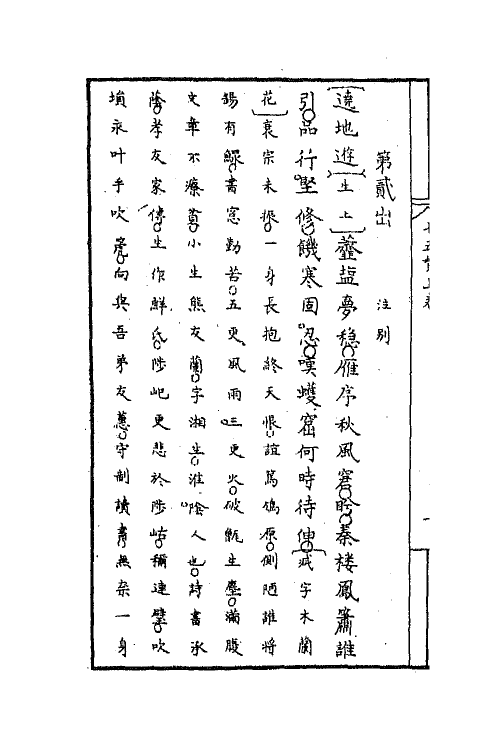 第貳出 泣別
遶地遊生上虀鹽夢穩雁序秋風窘盻秦樓鳳簫誰
引品行堅修饑寒固忍嘆蠖窟何時待伸減字木蘭
花哀宗未振一身長抱終天恨誼篤鴒原側陋誰將
錫有鰥書窓勤苦五更風雨三更火破甑生塵滿腹
文章不療貧小生熊友蘭字湘生淮陰人也詩書承
蔭孝友家傳生作鮮民陟屺更悲於陟岵稱連璧吹
壎永叶乎吹箎向與吾弟友蕙守制讀書無奈一身